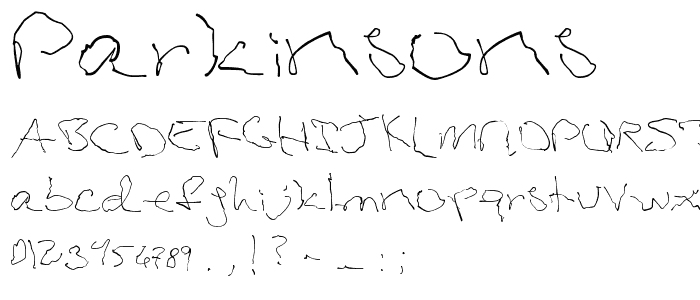 Parkinsons
ABCDEFGHIJKLMNOPQRST
abcdefghijklmnopqrstuvwx
0123456789 . , ! ? - _ : ;